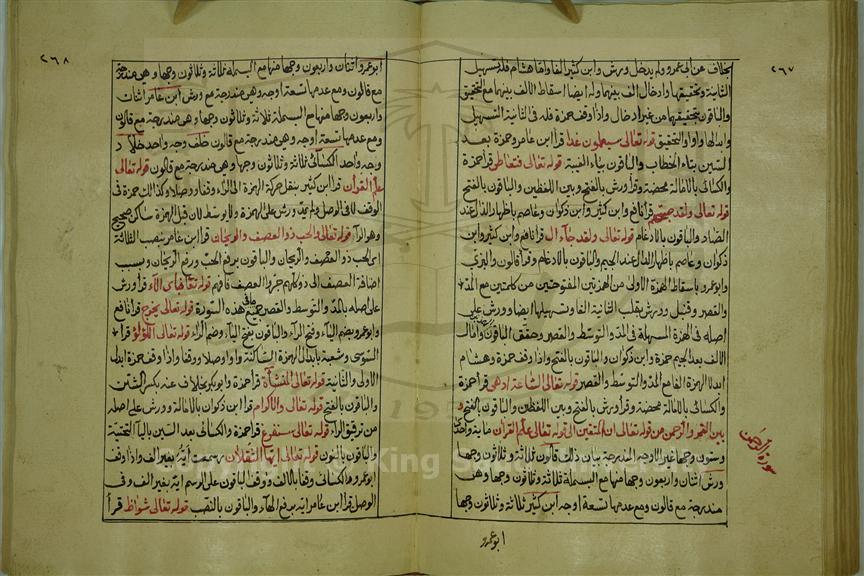 ٢٦٧
بخلاف عن ابى عمرو ولم يدخل ورش وابن كثير الفا واما هشام فله تسهيل
الثانية وتحقيقها وادخال الف بينهما وله ايضا اسقاط الالف بينهما مع التحقيق
والباقون بتحقيقهما من غير ادخال واذا وقف حمزة فله فى الثانية التسهيل
وابدالها واوا والتحقيق قوله تعالى سيعلمون غدا قرأ ابن عامر وحمزة بعد
السين بتاء الخطاب والباقون بياء الغيبة قوله تعالى فتعاطى قرأ حمزة
والكسائى بالامالة محضة وقرأ ورش بالفتح وبين اللفظين والباقون بالفتح
قوله تعالى ولقد صبحهم قرأ نافع وابن كثير وابن ذكوان وعاصم باظهار الدال عند
الصاد والباقون بالادغام قوله تعالى ولقد جاء ال قرأ نافع وابن كثير وابن
ذكوان وعاصم باظهار الدال عند الجيم والباقون بالادغام وقرأ قالون والبزى
وابو عمرو باسقاط الهمزة الاولى من الهمزتين المفتوحتين من كلمتين مع المد
والقصر وقنبل وورش بقلب الثانية الفا وتسهيلها ايضا وورش على
اصله فى الهمزة المسهلة فى المد والتوسط والقصر وحقق الباقون وامال
الالف بعد الجيم حمزة وابن ذكوان والباقون بالفتح واذا وقف حمزة وهشام
ابدلا الهمزة الفا مع المد والتوسط والقصر قوله تعالى الساعة ادهى قرأ حمزة
والكسائى بالامالة محضة وقرأ ورش بالفتح وبين اللفظين والباقون بالفتح
بين القمر والرحمن من قوله تعالى ان المتقين الى قوله تعالى علم القرآن ماية واحد
وستون وجها غير الاوجه المندرجة بيان ذلك قالون ثلاثة وثلاثون وجها
ورش اثنان واربعون وجها منها مع البسملة ثلاثة وثلاثون وجها وهى
مندرجة مع قالون ومع عدمها تسعة اوجه ابن كثير ثلاثة وثلاثون وجها
سورة الرحمن
ابو عمرو
٢٦٨
ابو عمرو اثنان واربعون وجها منها مع البسملة ثلاثة وثلاثون وجها وهى مندرجة
مع قالون ومع عدمها تسعة اوجه وهى مندرجة مع ورش ابن عامر اثنان
واربعون وجها منها مع البسملة ثلاثة وثلاثون وجها وهى مندرجة مع قالون
ومع عدمها تسعة اوجه وهى مندرجة مع قالون خلف وجه واحد خلاد
وجه واحد الكسائى ثلاثة وثلاثون وجها وهى مندرجة مع قالون قوله تعالى
علم القرآن قرأ ابن كثير بنقل حركة الهمزة الى الراء وقفا ووصلا وكذلك حمزة فى
الوقف لا فى الوصل ولم يمد ورش على الهمزة ولا يوسط لان قبل الهمزة ساكن صحيح
وهو الراء قوله تعالى والحب ذو العصف والريحان قرأ ابن عامر بنصب الثلاثة
اى الحب ذو العصف والريحان والباقون برفع الحب ورفع الريحان وبسبب
اضافة العصف الى ذو كلهم جروا العصف فافهم قوله تعالى فبأى آلاء قرأ ورش
على اصله بالمد والتوسط والقصر جميع ما فى هذه السورة قوله تعالى يخرج قرأ نافع
وابو عمرو بضم الياء وفتح الراء والباقون بفتح الياء وضم الراء قوله تعالى اللؤلؤ قرأ
السوسى وشعبة بابدال الهمزة الساكنة واوا وصلا ووقفا واذا وقف حمزة ابدل
الاولى والثانية قوله تعالى المنشآت قرأ حمزة وابو بكر بخلاف عنه بكسر الشين
والباقون بالفتح قوله تعالى والاكرام قرأ ابن ذكوان بالامالة وورش على اصله
من ترقيق الراء قوله تعالى سنفرغ قرأ حمزة والكسائى بعد السين بالياء التحتية
والباقون بالنون قوله تعالى ايها الثقلان رسمت ايه بغير الف واذا وقف
ابو عمرو والكسائى وقفا بالالف ووقف الباقون على الرسم ايه بغير الف وفى
الوصل قرأ ابن عامر ايه برفع الهاء والباقون بالنصب قوله تعالى شواظ قرأ